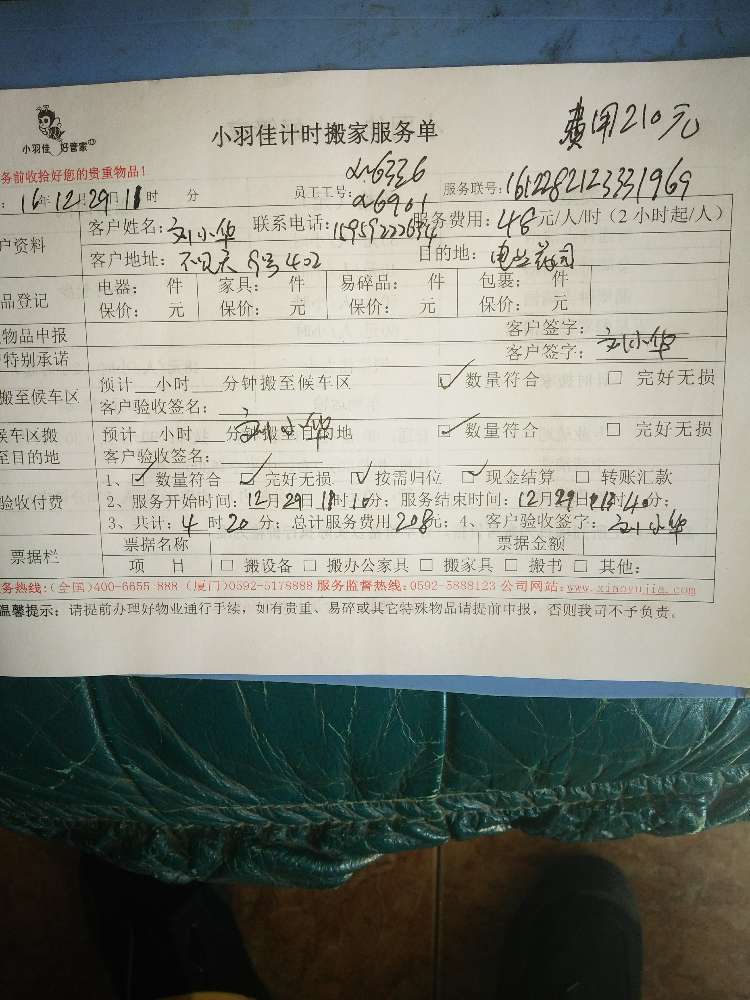 小羽佳 好管家
小羽佳计时搬家服务单
费用210元
务前收拾好您的贵重物品!
: 16年12月29日11时 分 员工工号: 服务联号:
客户姓名:刘小华 联系电话: 服务费用:48元/人/时(2小时起/人)
户资料
客户地址: 9号402 目的地:
电器: 件 家具: 件 易碎品: 件 包裹: 件
品登记
保价: 元 保价: 元 保价: 元 保价: 元
物品申报 客户签字:
特别承诺 客户签字:刘小华
搬至候车区 预计 小时 分钟搬至候车区 ☑ 数量符合 □ 完好无损
客户验收签名:
候车区搬 预计 小时 分钟搬至目的地 ☑ 数量符合 □ 完好无损
至目的地 客户验收签名:刘小华
1、☑ 数量符合 ☑ 完好无损 ☑ 按需归位 ☑ 现金结算 □ 转账汇款
验收付费 2、服务开始时间:12月29日11时10分;服务结束时间:12月29日 时40分;
3、共计:4时20分;总计服务费用208元;4、客户验收签字:刘小华
票据名称 票据金额
票据栏
项 目 □ 搬设备 □ 搬办公家具 □ 搬家具 □ 搬书 □ 其他:
务热线:(全国)400-6655-888 (厦门)0592-5178888 服务监督热线:0592-5888123 公司网站:www.xiaoyujia.com
温馨提示:请提前办理好物业通行手续,如有贵重、易碎或其它特殊物品请提前申报,否则我司不予负责。